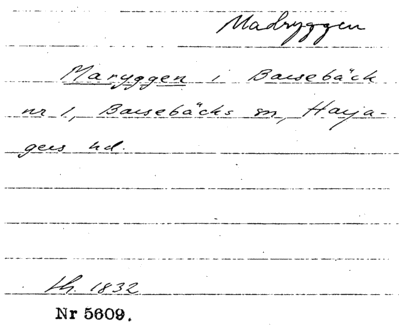 Madryggen
Maryggen i Barsebäck
nr 1, Barsebäcks sn, Harja-
gers hd.
sk. 1832
Nr 5609.